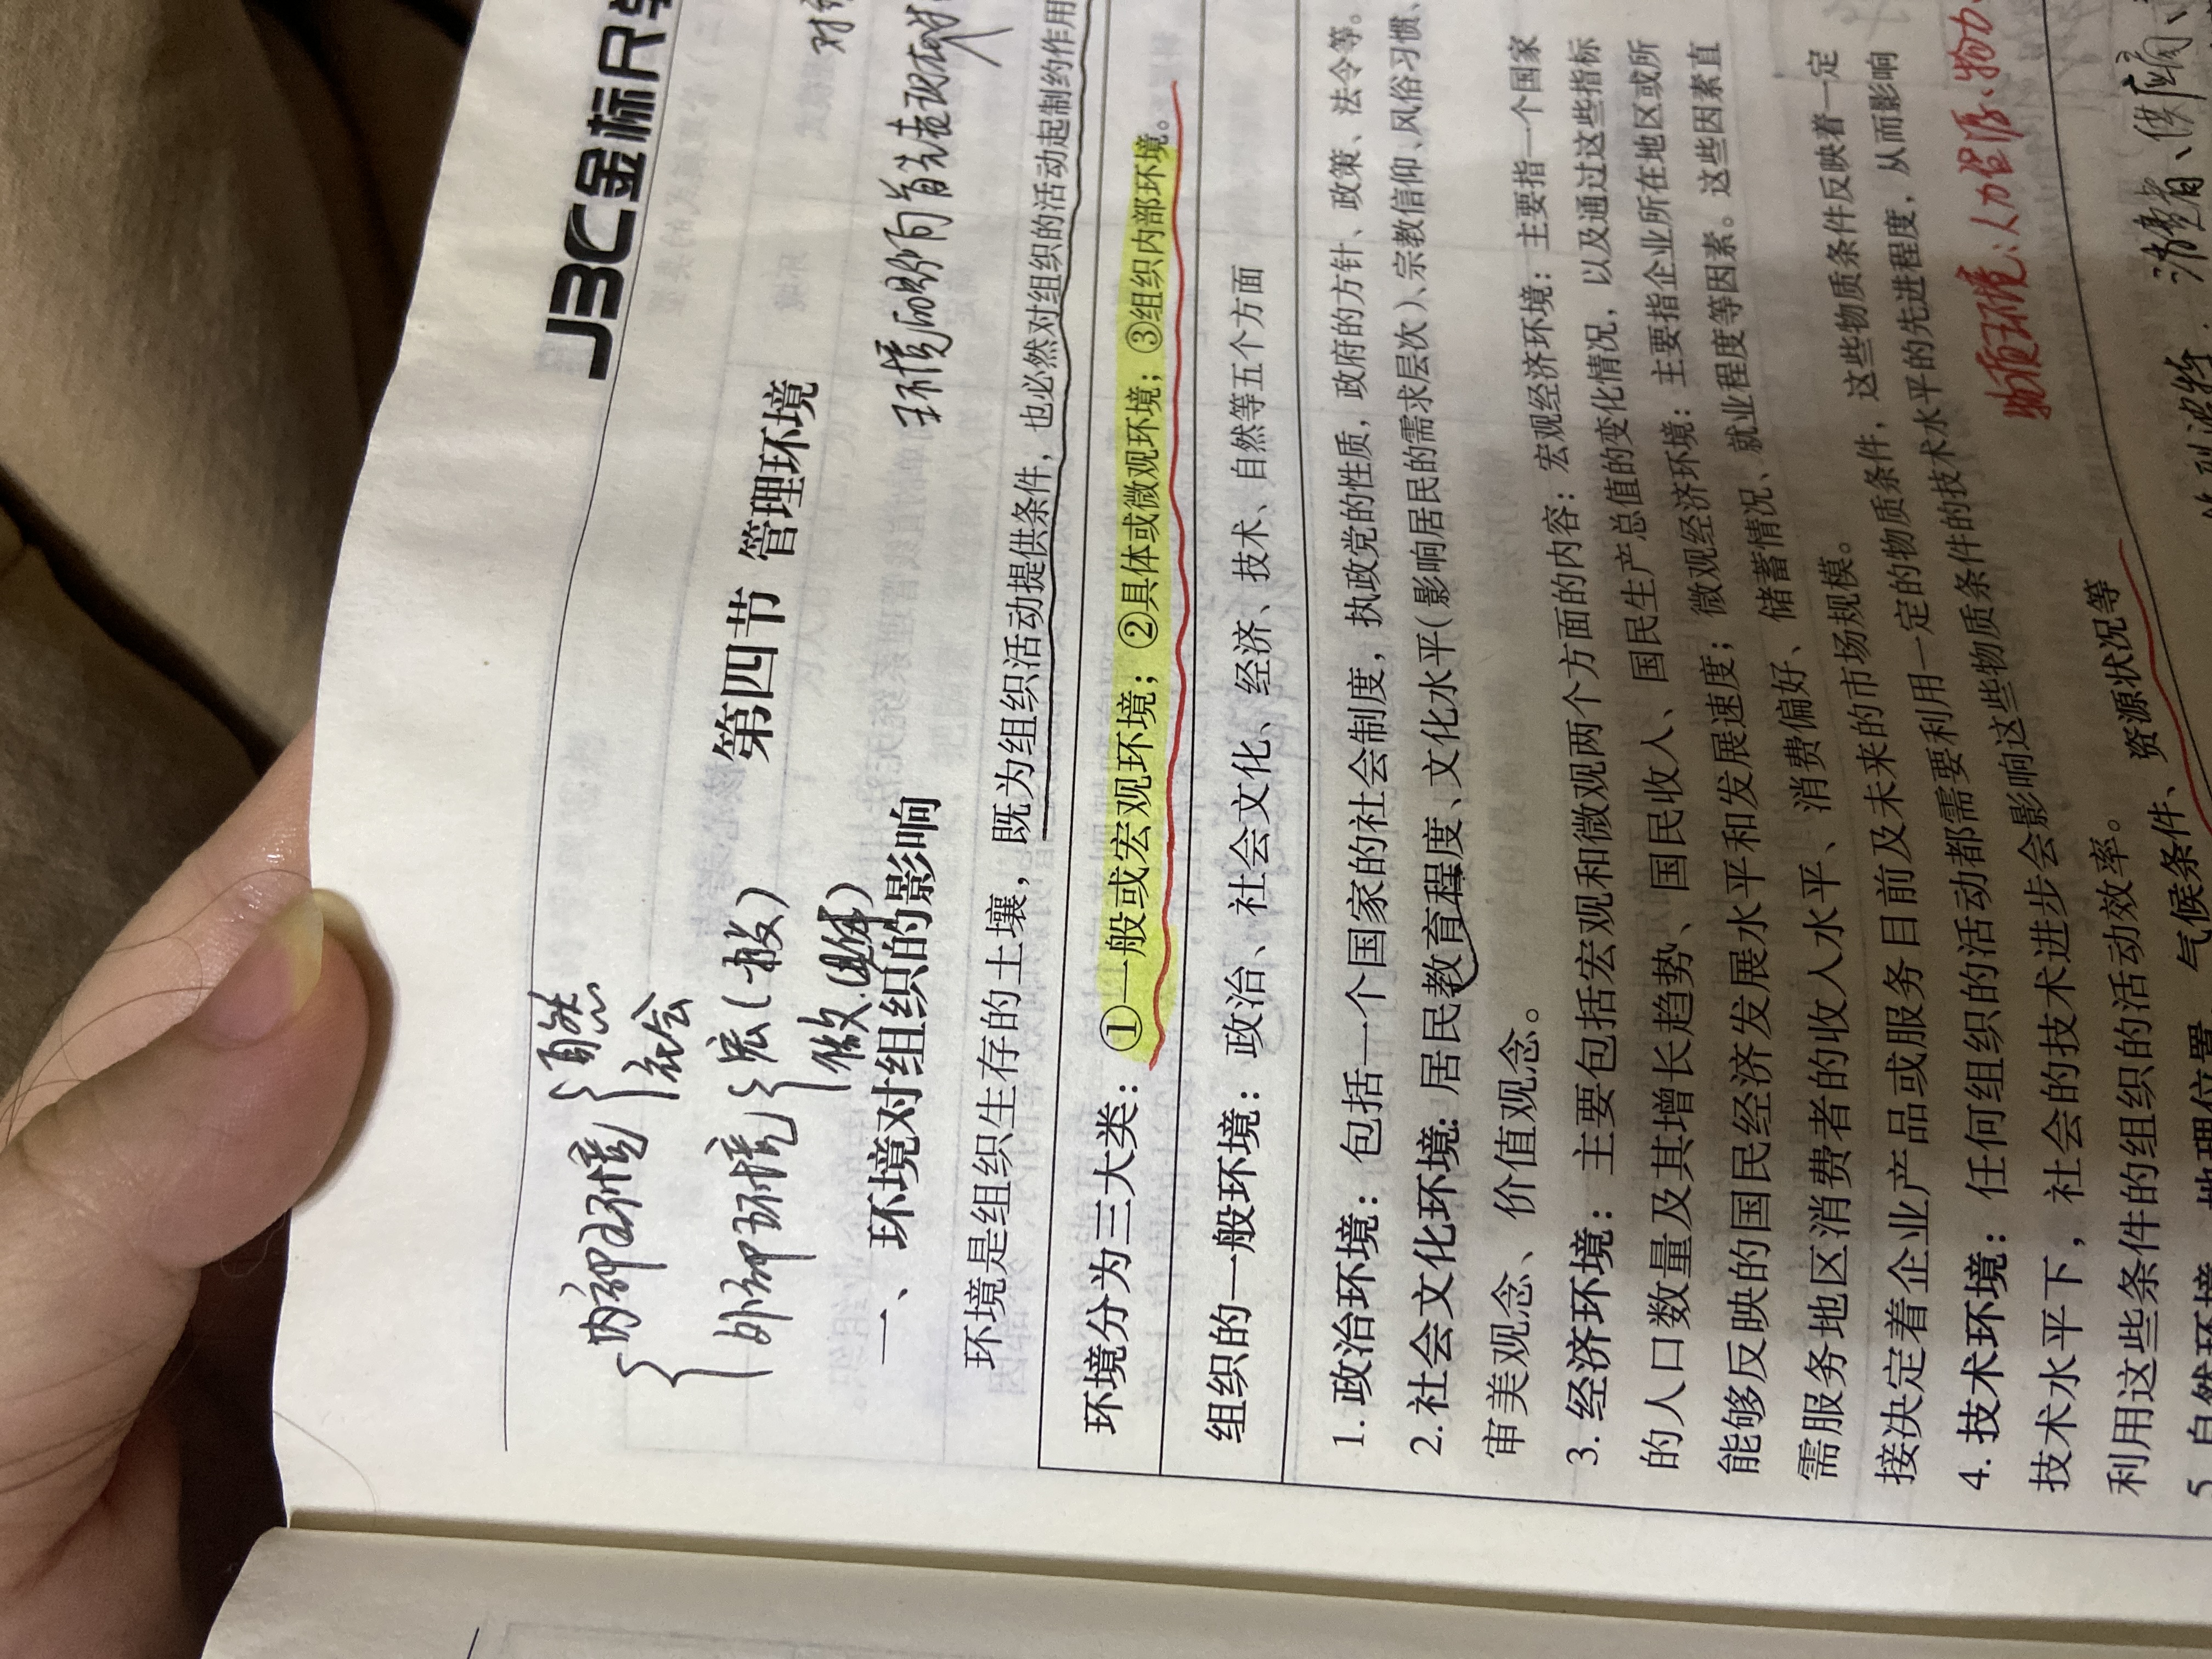 JBC金标尺
内部环境 自然
社会
外部环境 宏(一般)
微(具体)
第四节 管理环境
一、环境对组织的影响
环境的影响首先表现在对
环境是组织生存的土壤，既为组织活动提供条件，也必然对组织的活动起制约作用
环境分为三大类：①一般或宏观环境；②具体或微观环境；③组织内部环境。
组织的一般环境：政治、社会文化、经济、技术、自然等五个方面
1.政治环境：包括一个国家的社会制度，执政党的性质，政府的方针、政策、法令等。
2.社会文化环境：居民教育程度、文化水平(影响居民的需求层次)、宗教信仰、风俗习惯、
审美观念、价值观念。
3.经济环境：主要包括宏观和微观两个方面的内容：宏观经济环境：主要指一个国家
的人口数量及其增长趋势、国民收入、国民生产总值的变化情况，以及通过这些指标
能够反映的国民经济发展水平和发展速度；微观经济环境：主要指企业所在地区或所
需服务地区消费者的收入水平、消费偏好、储蓄情况、就业程度等因素。这些因素直
接决定着企业产品或服务目前及未来的市场规模。
4.技术环境：任何组织的活动都需要利用一定的物质条件，这些物质条件反映着一定
技术水平下，社会的技术进步会影响这些物质条件的技术水平的先进程度，从而影响
利用这些条件的组织的活动效率。
物质环境：人力资源、物力、
5.自然环境 地理位置、气候条件、资源状况等
消费者、供应商、